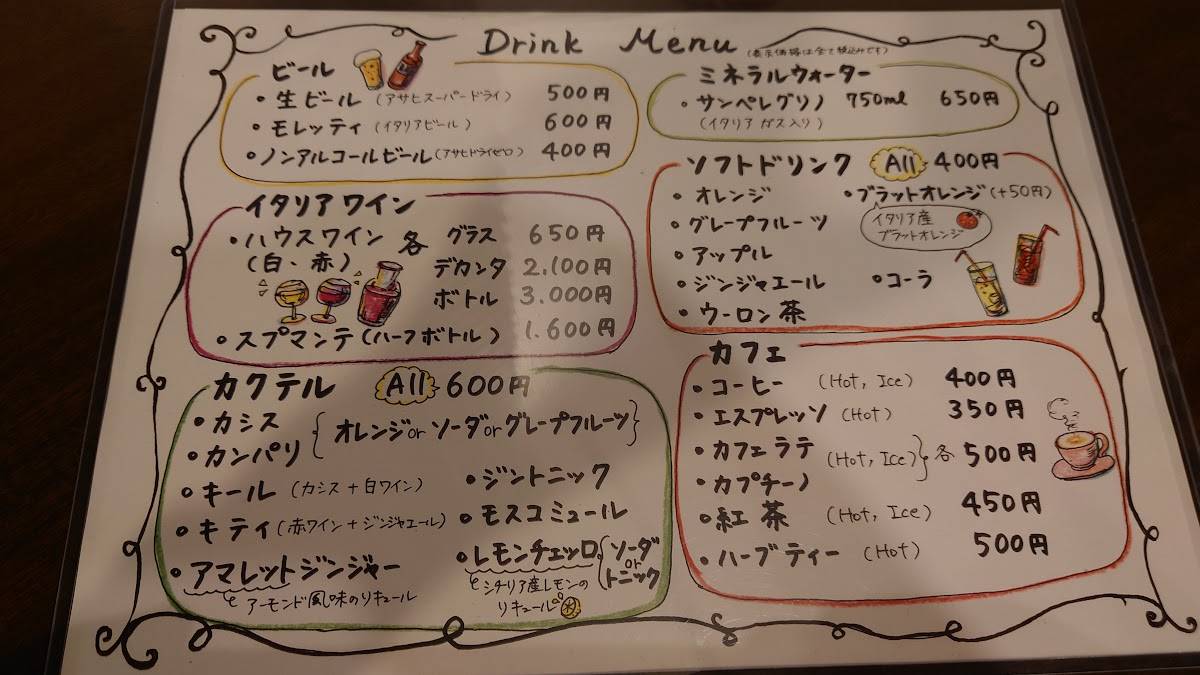 Drink Menu
(表示価格は全て税込みです)
ビール
・生ビール (アサヒスーパードライ) 500円
・モレッティ (イタリアビール) 600円
・ノンアルコールビール (アサヒドライゼロ) 400円
イタリアワイン
・ハウスワイン 各 グラス 650円
(白、赤) デカンタ 2.100円
ボトル 3.000円
・スプマンテ (ハーフボトル) 1.600円
カクテル All 600円
・カシス
・カンパリ {オレンジorソーダorグレープフルーツ}
・キール (カシス+白ワイン)
・ジントニック
・キティ (赤ワイン+ジンジャエール)
・モスコミュール
・アマレットジンジャー
アーモンド風味のリキュール
・レモンチェッロ {ソーダ
or
トニック
シチリア産レモンの
リキュール
ミネラルウォーター
・サンペレグリノ 750ml 650円
(イタリア ガス入り)
ソフトドリンク All 400円
・オレンジ
・ブラットオレンジ (+50円)
イタリア産
ブラットオレンジ
・グレープフルーツ
・アップル
・ジンジャエール
・コーラ
・ウーロン茶
カフェ
・コーヒー (Hot, Ice) 400円
・エスプレッソ (Hot) 350円
・カフェラテ
・カプチーノ (Hot, Ice)} 各 500円
・紅茶 (Hot, Ice) 450円
・ハーブティー (Hot) 500円